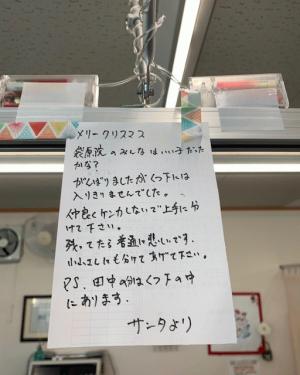 メリークリスマス
袋原院のみんなはいい子だった
かな?
がんばりましたがくつ下には
入りきりませんでした。
仲良くケンカしないで上手に分
けて下さい。
残ってたら普通に悲しいです。
小山さんにも分けてあげて下さい。
P.S. 田中の分はくつ下の中
にあります.
サンタより